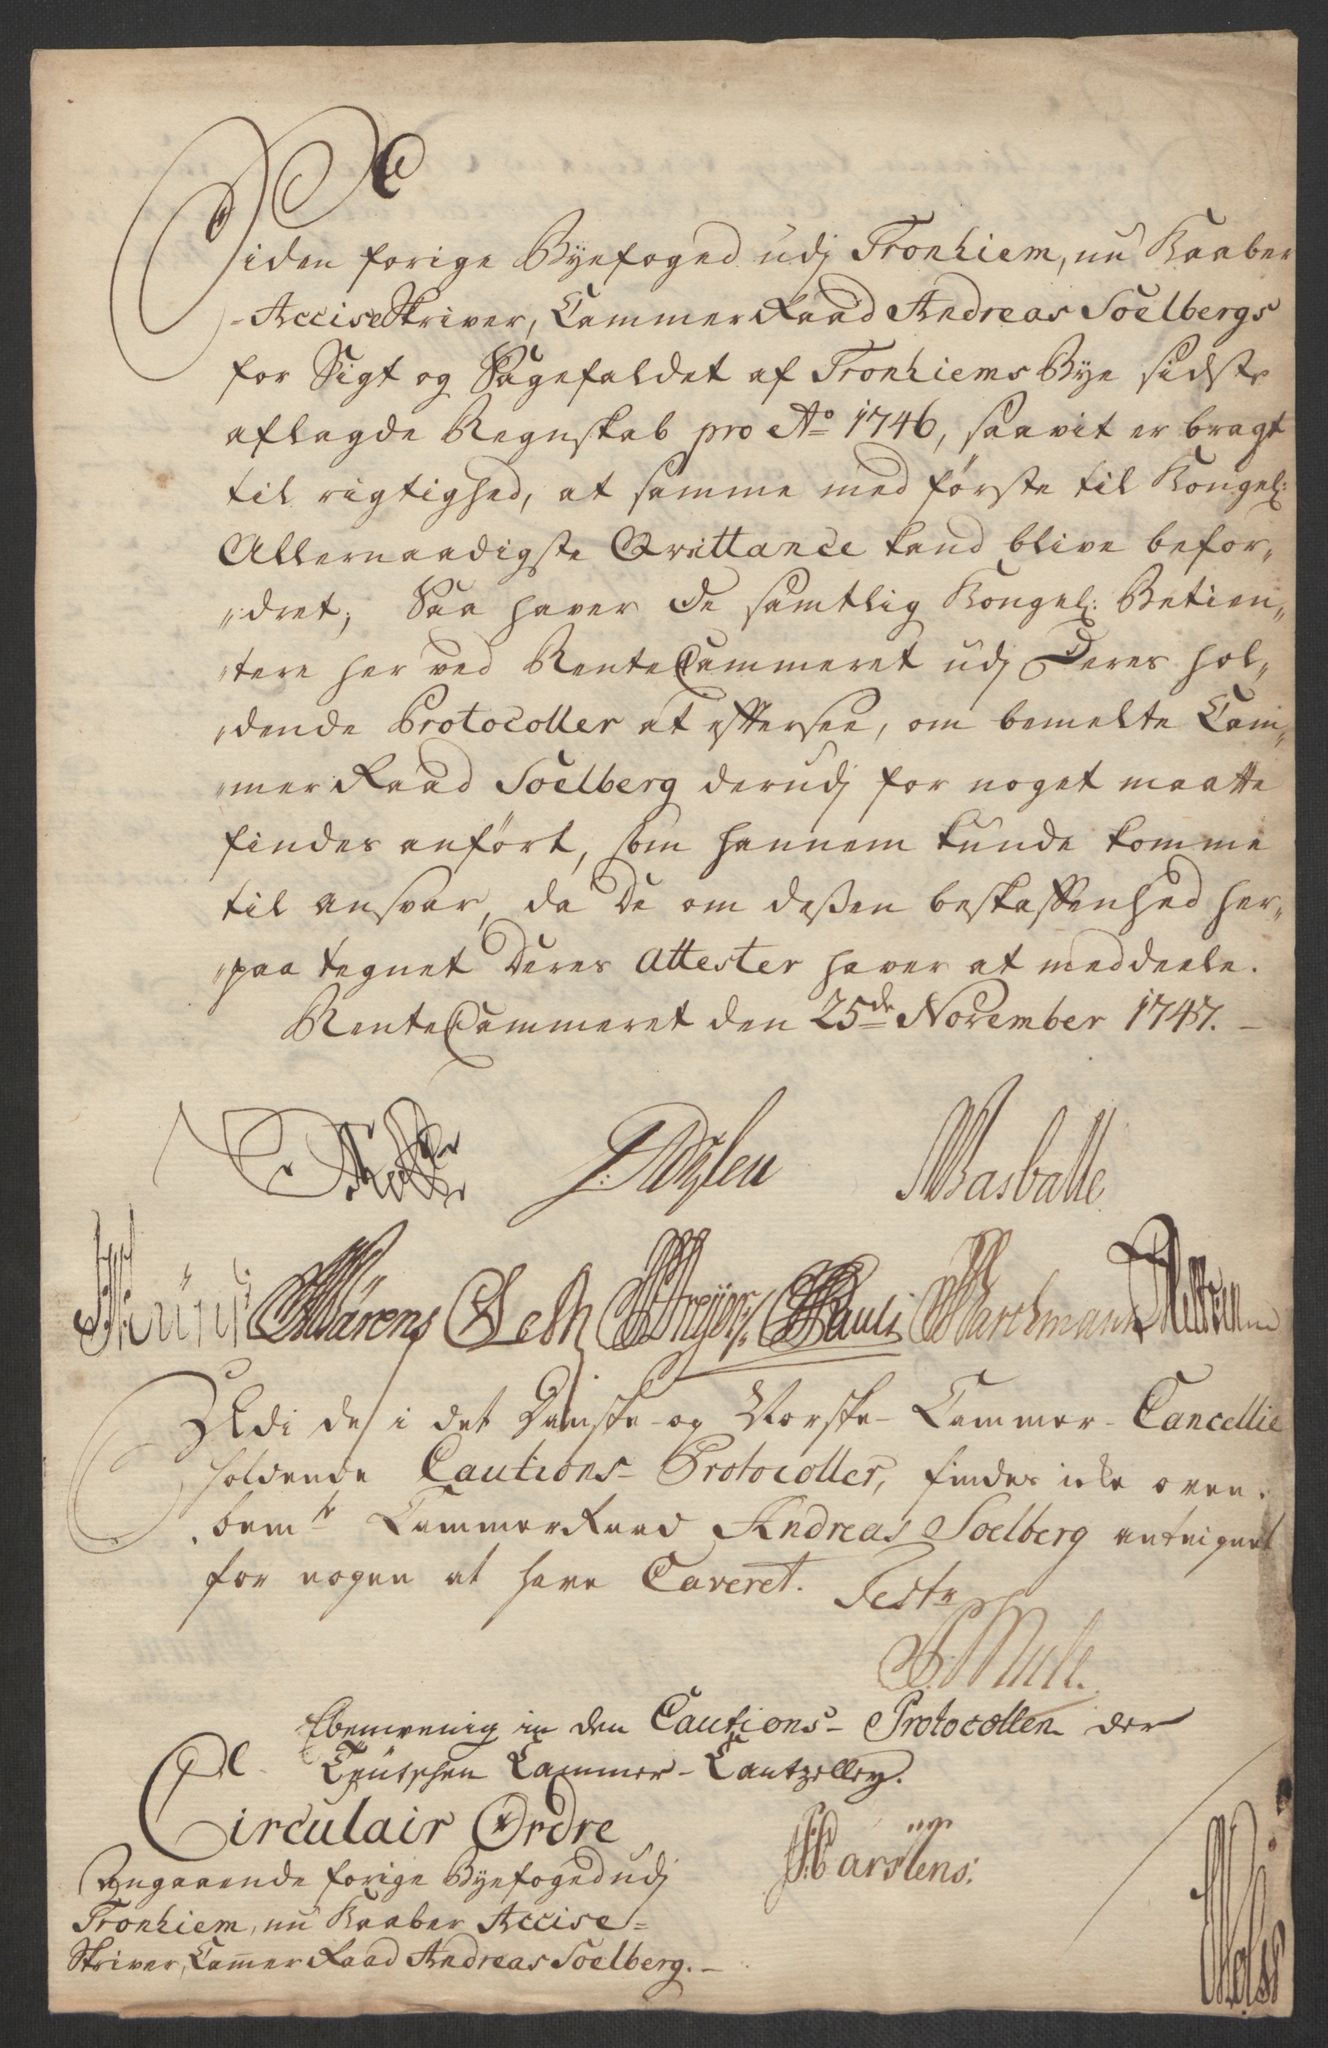 Siden forige Byefoged udj Tronhiem, nu Kaaber
-Accise Skriver, Cammer Raad Andreas Soelbergs
for Sigt og Sagefaldet af Tronhiems Bye sidste
aflagde Regnskab pro Ao 1746, saavit er bragt
til rigtighed, at samme med første til Kongel:
Allernaadigste Qvittance kand blive befor„
„dret; Saa haver De samtlig Kongel: Betien„
„tere her ved Rente Cammeret udj Deres hol„
„dende Protocoller at eftersee, om bemelte Cam„
„mer Raad Soelberg derudj for noget maatte
findes anført, som hannem kunde komme
til ansvar, da De om deßen beskaffenhed her„
„paa tegnet Deres Attester haver at meddeele.
Rente Cammeret den 25de November 1747.
Wasballe
Wärens Leth Pauli Marckmann
Udi de i det Danske- og Norske- Cammer- Cancellie
holdende Cautions- Protocoller, findes icke oven-
bemte Cammer Raad Andreas Soelberg anteignet
for nogen at have Caveret. Test
Mule.
Ebenwenig in den Cautions- Protocollen der
Teütschen Cammer- Cantzelley.
Circulair Ordre
Angaaende forige Byefoged udj
Tronhiem, nu Kaaber Accise-
Skriver, Cammer Raad Andreas Soelberg.
Carstens.